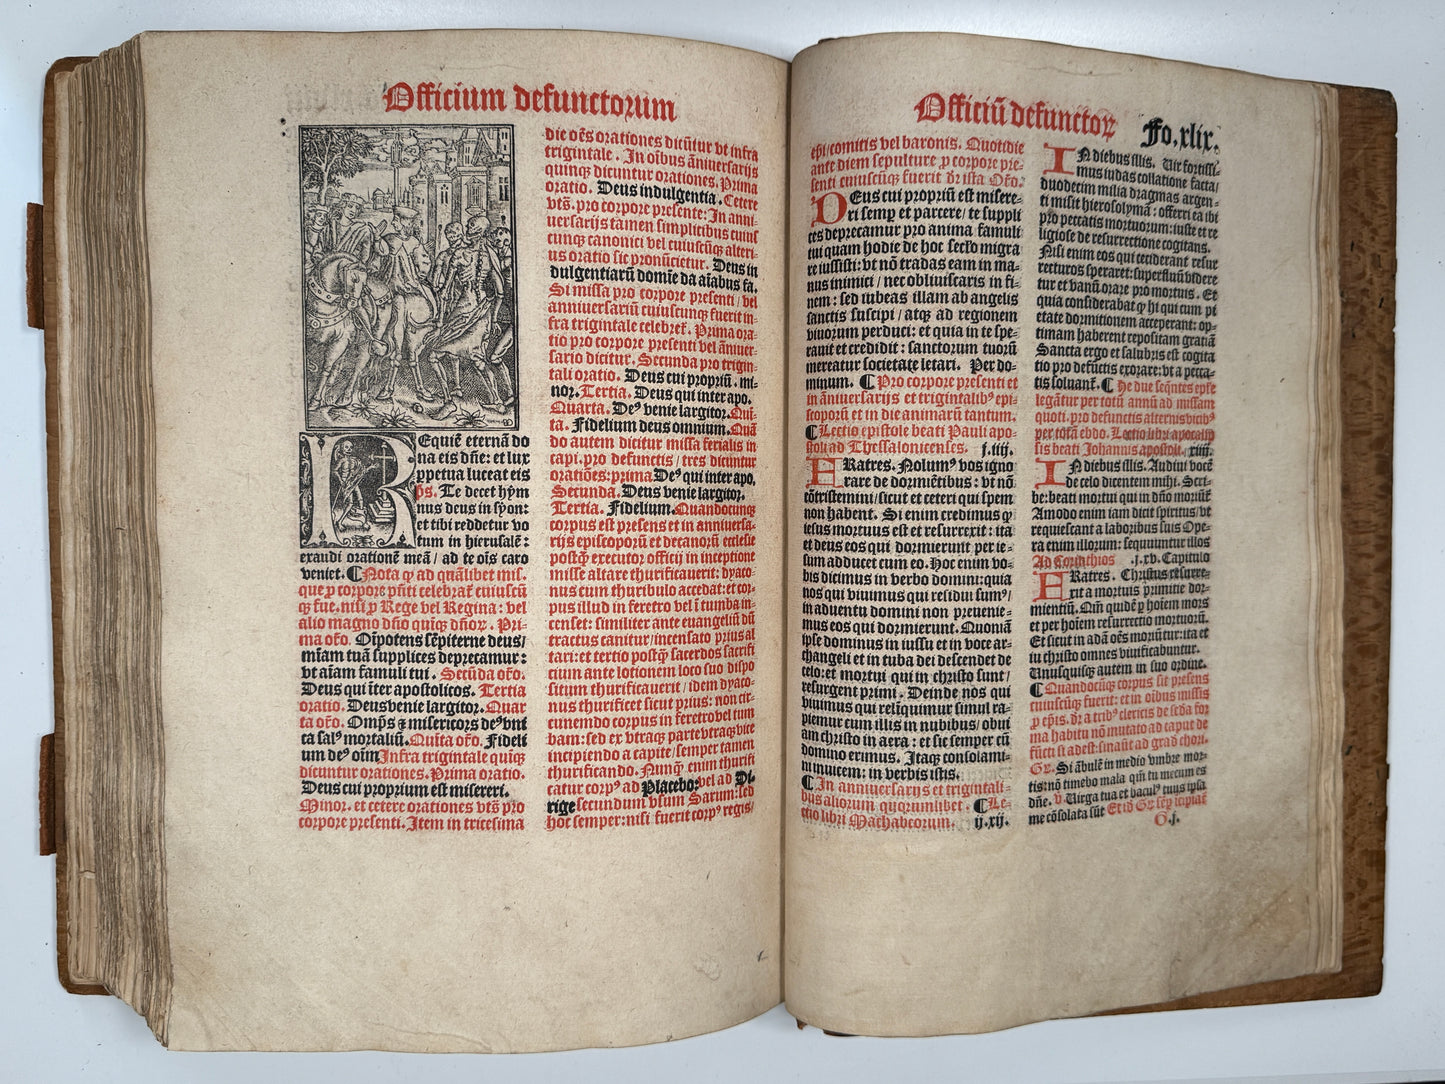 Officium defunctorum
Requiē eternā do
na eis dn̄e: et lux
ꝑpetua luceat eis
p̄s. Te decet hym̄
nus deus in syon:
et tibi reddetur vo
tum in hierusalē:
exaudi orationē meā / ad te oīs caro
veniet. ¶ Nota ꝙ ad quālibet mis⸗
que ꝓ corpore p̄nti celebrat̄ cuiuscū
qꝫ fue. nisi ꝓ Rege vel Regina: vel
alio magno dn̄o quiqꝫ dn̄oꝝ. Pri⸗
ma or̄o. Oīpotens sēpiterne deus /
mīam tuā supplices deprecamur:
vt aīam famuli tui. Secūda or̄o.
Deus qui īter apostolicos. Tertia
oratio. Deus venie largitor. Quar
ta or̄o. Omp̄s ⁊ misericors deꝰ vni
ca salꝰ mortaliū. Quīta or̄o. Fideli
um deꝰ oīm Infra trigintale quīqꝫ
dicuntur orationes. Prima oratio.
Deus cui proprium est misereri.
Minor. et cetere orationes vts̄ pro
corpore presenti. Item in tricesima
die oēs orationes dicūtur vt infra
trigintale. In oībus āniuersarijs
quinqꝫ dicuntur orationes. Prima
oratio. Deus indulgentia. Cetere
vts̄. pro corpore presente: In anni⸗
uersarijs tamen simplicibus cuius
cunqꝫ canonici vel cuiuscūqꝫ alteri⸗
us oratio sic pronūcietur. Deus in
dulgentiarū domīe da aīabus fa.
Si missa pro corpore presenti / vel
anniuersariū cuiuscunqꝫ fuerit in⸗
fra trigintale celebret̄. Prima ora⸗
tio pro corpore presenti vel āniuer⸗
sario dicitur. Secunda pro trigin⸗
tali oratio. Deus cui propriū. mi⸗
nor. Tertia. Deus qui inter apo.
Quarta. Deꝰ venie largitor. Qui⸗
ta. Fidelium deus omnium. Quā
do autem dicitur missa ferialis in
capi. pro defunctis / tres dicūtur
orationes: prima Deꝰ qui inter apo.
Secunda. Deus venie largitor.
Tertia. Fidelium. Quandocunqꝫ
corpus est presens et in anniuersa⸗
rijs episcoporū et decanorū ecclesie
postqꝫ executor officij in inceptione
misse altare thurificauerit: dyaco⸗
nus cum thuribulo accedat: et cor⸗
pus illud in feretro vel ī tumba in⸗
censet: similiter ante euangeliū dū
tractus canitur / incensato prius al
tari: et tertio postqꝫ sacerdos sacrifi
cium ante lotionem loco suo dispo
situm thurificauerit / idem dyaco⸗
nus thurificet sicut prius: non cir⸗
cunemdo corpus in feretro vel tum
bam: sed ex vtraqꝫ parte vtraqꝫ vice
incipiendo a capite / semper tamen
thurificando. Nunqꝫ enim thurifi
catur corpꝰ ad Placebo: vel ad Di⸗
rige secundum vsum Sarum: sed
hoc semper: nisi fuerit corpꝰ regis /
Officiū defunctoꝝ
Fo. xlix.
epi / comitis vel baronis. Quotidie
ante diem sepulture ꝓ corpore pre⸗
senti cuiuscūqꝫ fuerit dr̄ ista Or̄o.
Deus cui propriū est misere⸗
ri semꝑ et parcere / te suppli
ces deprecamur pro anima famuli
tui quam hodie de hoc sec̄lo migra
re iussisti: vt nō tradas eam in ma⸗
nus inimici / nec obliuiscaris in fi⸗
nem: sed iubeas illam ab angelis
sanctis suscipi / atqꝫ ad regionem
viuorum perduci: et quia in te spe⸗
rauit et credidit: sanctorum tuorū
mereatur societate letari. Per do⸗
minum. ¶ Pro corpore presenti et
in āniuersarijs et trigintalibꝰ epi⸗
scoporū et in die animarū tantum.
¶ Lectio epistole beati Pauli apo⸗
stoli ad Thessalonicenses. j. iiij.
Fratres. Nolumꝰ vos igno
rare de dormiētibus: vt nō
cōtristemini / sicut et ceteri qui spem
non habent. Si enim credimus ꝙ
iesus mortuus est et resurrexit: ita
et deus eos qui dormierunt per ie⸗
sum adducet cum eo. Hoc enim vo⸗
bis dicimus in verbo domini: quia
nos qui viuimus qui residui sumꝰ /
in aduentu domini non preuenie⸗
mus eos qui dormierunt. Quoniā
ipse dominus in iussu et in voce ar⸗
changeli et in tuba dei descendet de
celo: et mortui qui in christo sunt /
resurgent primi. Deinde nos qui
viuimus qui relīquimur simul ra⸗
piemur cum illis in nubibus / obui
am christo in aera: et sic semper cū
domino erimus. Itaqꝫ consolami⸗
ni inuicem: in verbis istis.
¶ In anniuersarijs et trigintali⸗
bus aliorum quorumlibet. ¶ Le⸗
ctio libri Machabeorum. ij. xij.
In diebus illis. Uir fortissi⸗
mus iudas collatione facta /
duodecim milia dragmas argen⸗
ti misit hierosolymā: offerri ea ibi
pro peccatis mortuorum: iuste et re
ligiose de resurrectione cogitans.
Nisi enim eos qui ceciderant resur
recturos speraret: superfluū videre
tur et vanū orare pro mortuis. Et
quia considerabat ꝙ hi qui cum pi
etate dormitionem acceperant: op⸗
timam haberent repositam gratiā
Sancta ergo et salubris est cogita
tio pro defūctis exorare: vt a pecca⸗
tis soluant̄. ¶ He due seq̄ntes ep̄le
legātur per totū annū ad missam
quoti. pro defunctis alternis vicibꝰ
per totā ebdo. Lectio libri apocalip
sis beati Johannis apostoli. xiiij.
In diebus illis. Audiui vocē
de celo dicentem mihi. Scri⸗
be: beati mortui qui in dn̄o moriūt̄
Amodo enim iam dicit spiritus / vt
requiescant a laboribus suis Ope⸗
ra enim illorum: sequuntur illos
Ad Corinthios .j. xv. Capitulo
Fratres. Christus resurre⸗
xit a mortuis primitie dor⸗
mientiū. Qm̄ quidē ꝑ hoīem mors
et per hoīem resurrectio mortuorū.
Et sicut in adā oēs moriūtur: ita et
iu christo omnes viuificabuntur.
Unusquisqꝫ autem in suo ordine.
¶ Quandocūqꝫ corpus sit presens
cuiuscūqꝫ fuerit: et in oībus missis
ꝓ ep̄is. dr̄ a tribꝰ clericis de sc̄da for
ma habitu nō mutato ad caput de
fūcti si adest: sinaūt ad grad̄ chori.
Gꝝ. Si ābulē in medio vmbre mor⸗
tis: nō timebo mala qm̄ tu mecum es
dn̄e. v. Uirga tua et baculꝰ tuus ipsa
me cōsolata sūt Et id Gꝝ sēꝑ icipiat̄
G.j.